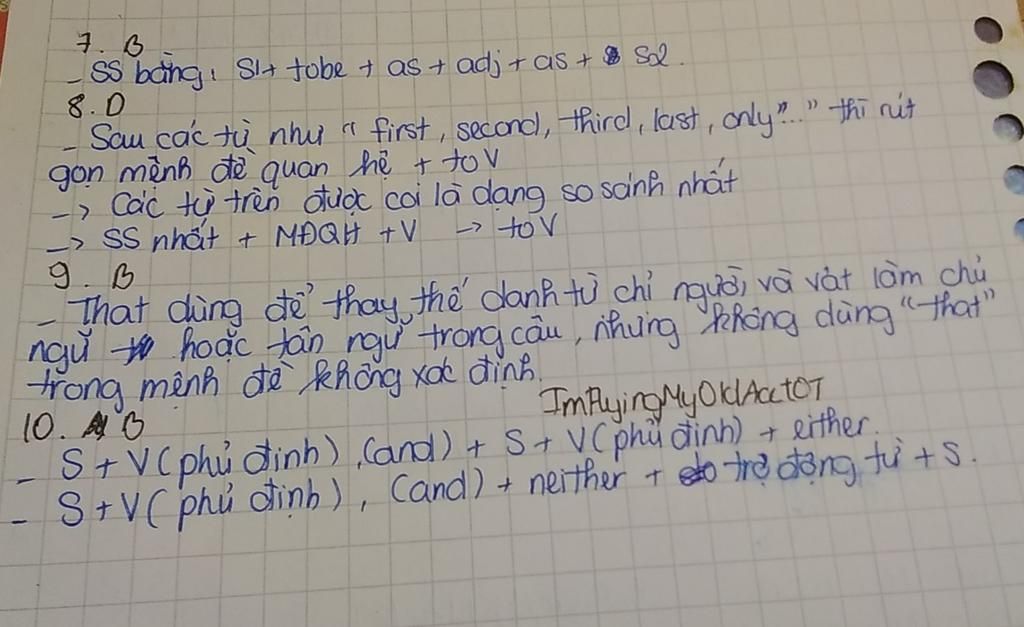 7. B
- SS bằng: S1 + tobe + as + adj + as + S2.
8. D
- Sau các từ như " first, second, third, last, only"..." thì rút
gọn mệnh đề quan hệ + to V
-> Các từ trên được coi là dạng so sánh nhất
-> SS nhất + MĐQH + V -> to V
9. B
- That dùng để thay thế danh từ chỉ người và vật làm chủ
ngữ hoặc tân ngữ trong câu, nhưng không dùng "that"
trong mệnh đề không xác định.
ImFlyingMyOldAcctOT
10. B
- S + V (phủ định), (and) + S + V (phủ định) + either.
- S + V ( phủ định), (and) + neither + trợ động từ + S.